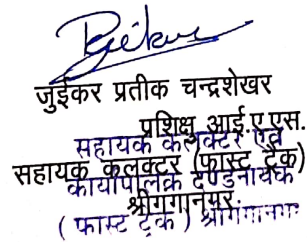 जुईकर प्रतीक चन्द्रशेखर
प्रशिक्षु आई.ए.एस.
सहायक कलक्टर एवं
सहायक कलक्टर (फास्ट ट्रैक)
कार्यपालक दण्डनायक
श्रीगंगानगर
( फास्ट ट्रैक ) श्रीगंगानगर